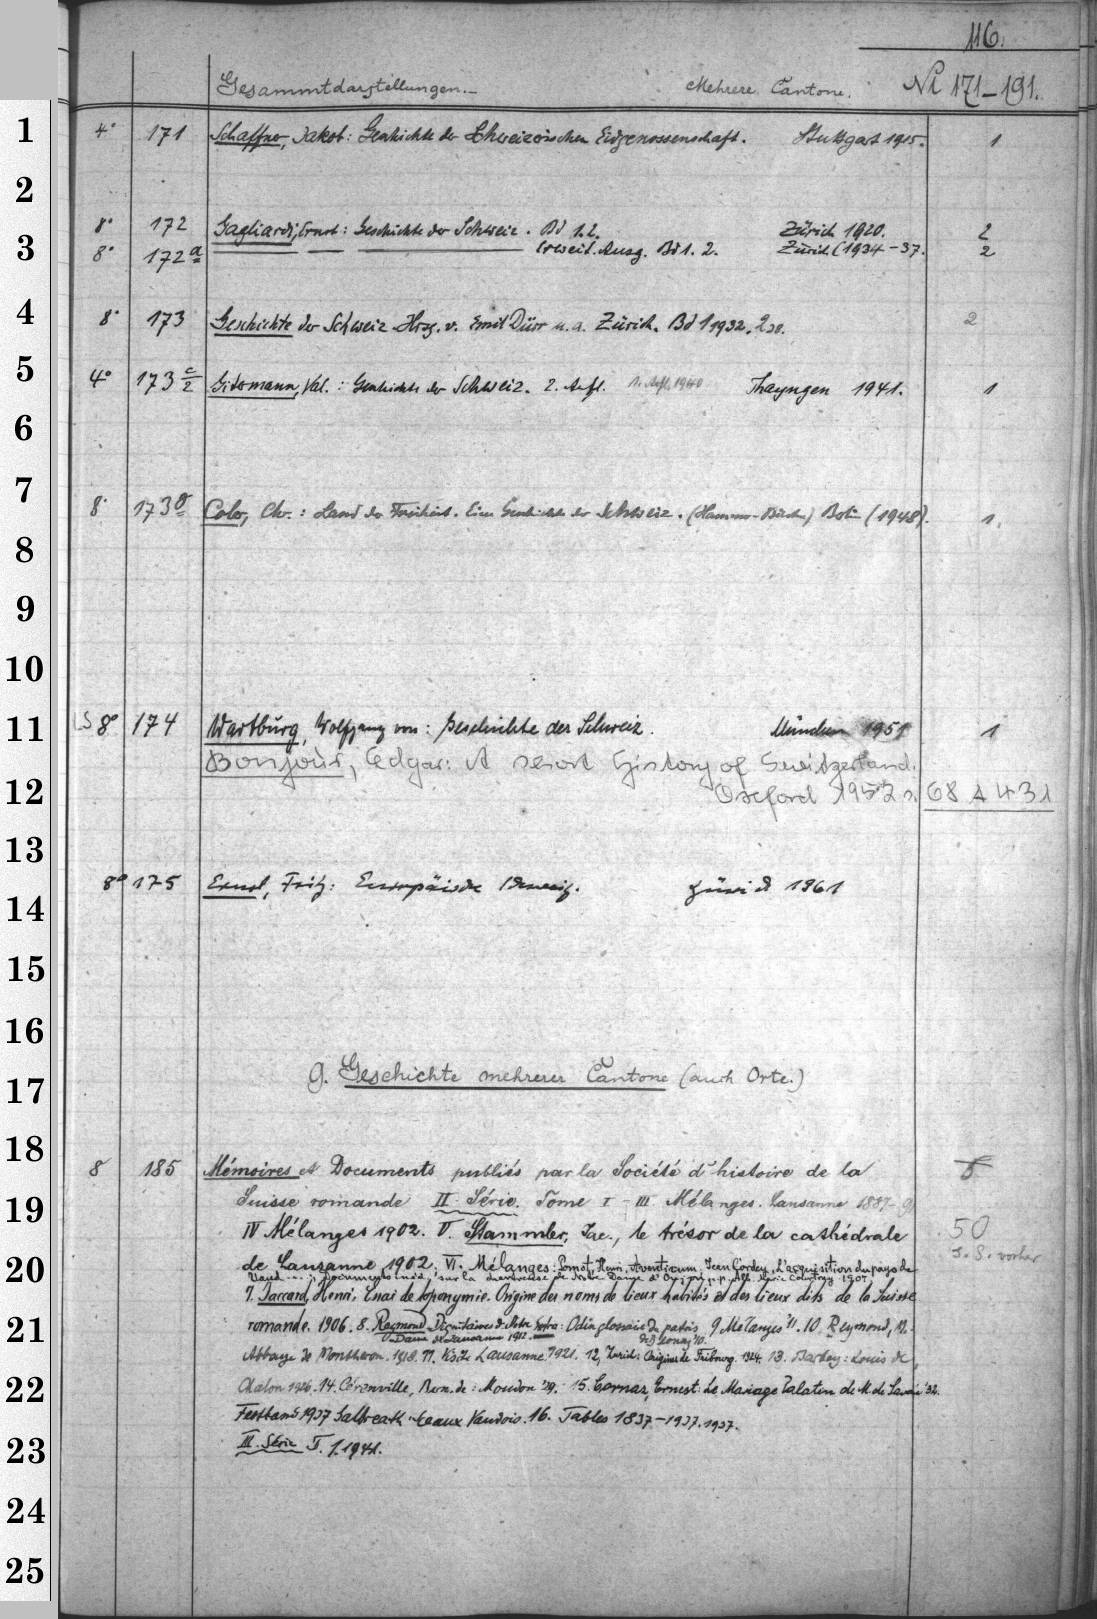 116.
Gesammtdarstellungen.- Mehrere Cantone. No 171-191.
1 4° 171 Schaffner, Jakob: Geschichte der Schweizerischen Eidgenossenschaft. Stuttgart 1915. 1
2
8° 172 Gagliardi, Ernst: Geschichte der Schweiz. Bd 1.2. Zürich 1920. 2
3 8° 172a Erweit. Ausg. Bd 1. 2. Zürich (1934-37. 2
4 8° 173 Geschichte der Schweiz Hrsg. v. Emil Dürr u. a. Zürich. Bd 1 1932. 2
5 4° 173 c/2 Gitermann, Val.: Geschichte der Schweiz. 2. Aufl. 1. Aufl. 1940 Thayngen 1941. 1
6
7 8° 173 Chr.: Land der Freiheit. Eine Geschichte der Schweiz. (1948). 1.
8
9
10
11 8° 174 Wartburg, Wolfgang von: Geschichte der Schweiz. München 1951 1
Bonjour, Edgar: A short history of Switzerland.
12 Oxford 1952 68 A 431
13
8° 175 Ernst, Fritz: Europäische Schweiz. Zürich 1961
14
15
16
17 g. Geschichte mehrerer Cantone (auch Orte.)
18 8 185 Mémoires et Documents publiés par la Société d'histoire de la 5
19 Suisse romande II Série. Tome I-III Mélanges. Lausanne 1887-
IV Mélanges 1902. V. Stammler, Jac., le trésor de la cathédrale 50
20 de Lausanne 1902. VI. Mélanges: Henri, Aventicum. Jean Cordey, L'acquisition du pays de s. S. vorher
Vaud Documents Notre Dame 1907
7. Jaccard, Henri, Essai de toponymie. Origine des noms de lieux habités et des lieux dits de la Suisse
21 romande. 1906. 8. Reymond, Dignitaires de Notre 9 Mélanges 10 Reymond, M.
Dame de Lausanne 1912.
Abbaye de Montheron. 1918. 11. Lausanne 1921. 12, Origines de Fribourg 1924. 13. Louis de
22 Chalon 1926. 14. Cérenville, de: Moudon '29. 15. Cornaz, Ernest. Le Mariage Palatin de M. de Savoie '32.
Festband 1937 Vaudois. 16. Tables 1837-1937. 1937.
23 III. Série T. 1. 1941.
24
25